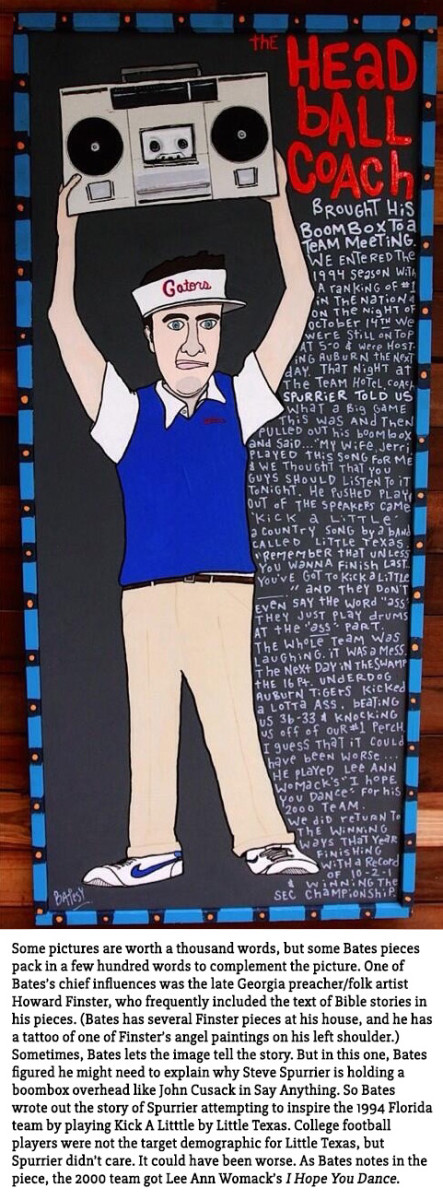 the
HEaD
bALL
COAch
BROUGHT HIS
BOOMBOX To a
TEAM MEETING.
WE ENTERED THE
1994 SEASON WITH
A RANKING OF #1
IN THE NATION &
ON THE NIGHT OF
OCTOBER 14TH WE
WERE STILL ON TOP
AT 5-0 & WERE HOST-
ING AUBURN THE NEXT
DAY. THAT NIGHT AT
THE TEAM HOTEL COACH
SPURRIER TOLD US
WHAT A BIG GAME
THIS WAS AND THEN
PULLED OUT HIS boombox
and SAID..."MY WIFE JERRI
PLAYED THIS SONG FOR ME
& WE THOUGHT THAT YOU
GUYS SHOULD LISTEN TO IT
TONIGHT. HE PUSHED PLAY
OUT OF THE SPEAKERS CAME
"KICK A LITTLE"
a COUNTRY SONG by a bAND
CALLED LITTLE TEXAS.
"REMEMBER THAT UNLESS
YOU WANNA FINISH LAST
YOU'VE GOT TO KICK a LITTLE
___" AND THEY DON'T
EVEN SAY THE WORD "ASS"
THEY JUST PLAY DRUMS
AT THE "ASS" PART.
THE WHOLE TEAM WAS
LAUGHING. IT WAS A MESS.
THE NEXT DAY IN THE SWAMP
THE 16 Pt. UNDERDOG
AUBURN TIGERS KICKED
a LOTTA ASS. BEATING
US 36-33 & KNOCKING
US OFF OF OUR #1 PERCH.
I GUESS THAT IT COULD
have BEEN WORSE...
HE PLAYED LEE ANN
WOMACK'S "I HOPE
YOU DANCE" FOR HIS
2000 TEAM.
WE DID RETURN TO
THE WINNING
WAYS THAT YEAR
FINISHING
WITH a RECORD
OF 10-2-1
& WINNING THE
SEC CHAMPIONSHIP.
Gators
BATESY
Some pictures are worth a thousand words, but some Bates pieces
pack in a few hundred words to complement the picture. One of
Bates's chief influences was the late Georgia preacher/folk artist
Howard Finster, who frequently included the text of Bible stories in
his pieces. (Bates has several Finster pieces at his house, and he has
a tattoo of one of Finster's angel paintings on his left shoulder.)
Sometimes, Bates lets the image tell the story. But in this one, Bates
figured he might need to explain why Steve Spurrier is holding a
boombox overhead like John Cusack in Say Anything. So Bates
wrote out the story of Spurrier attempting to inspire the 1994 Florida
team by playing Kick A Litttle by Little Texas. College football
players were not the target demographic for Little Texas, but
Spurrier didn't care. It could have been worse. As Bates notes in the
piece, the 2000 team got Lee Ann Womak's I Hope You Dance.